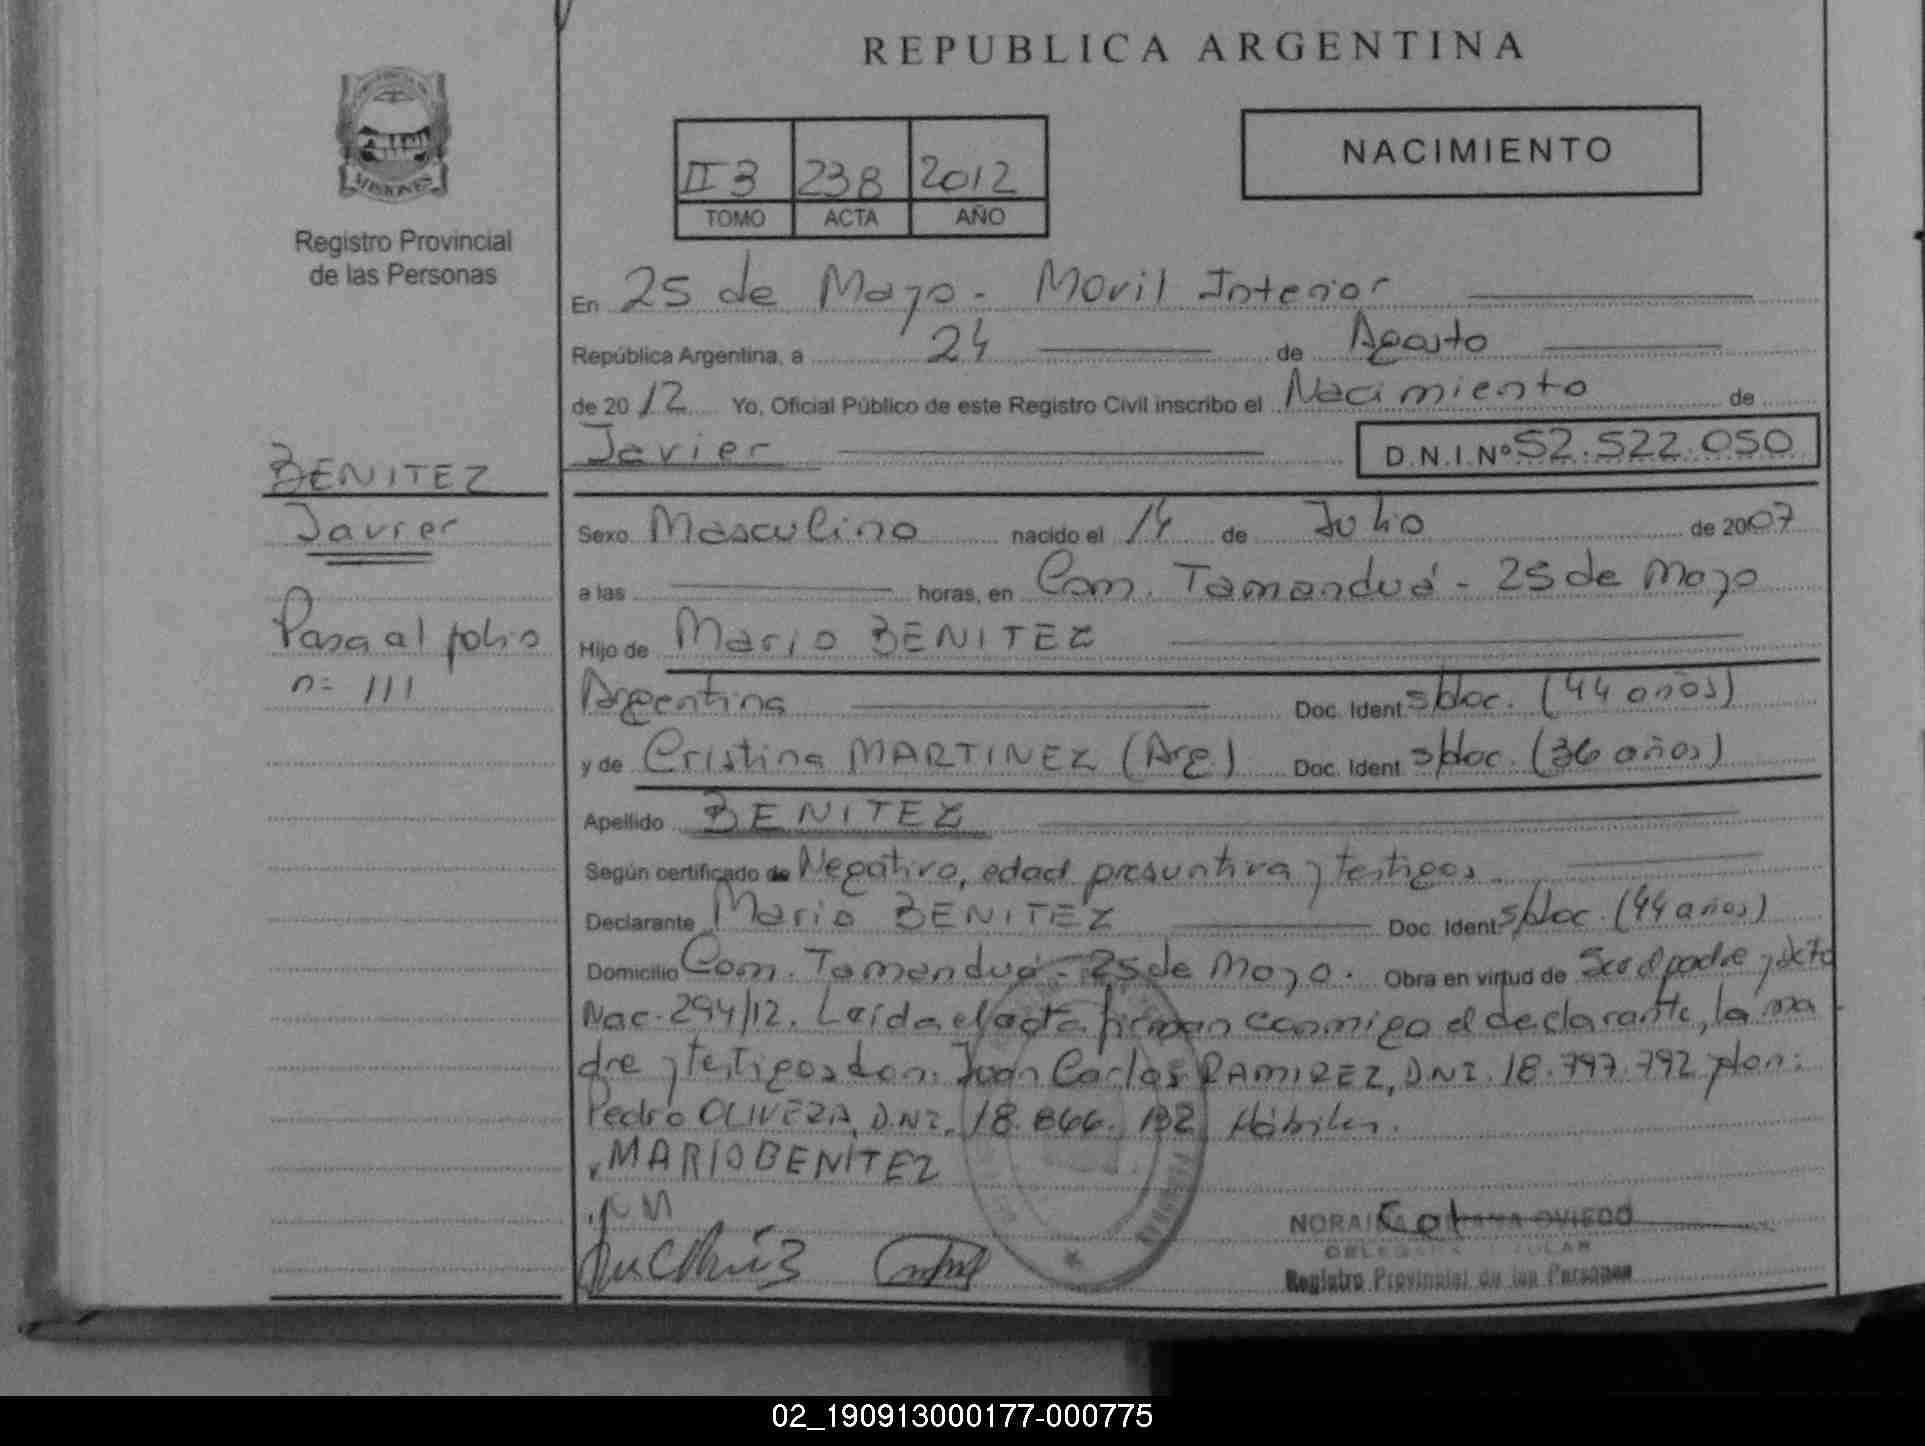 REPUBLICA ARGENTINA
MISIONES
Registro Provincial
de las Personas
II 3 238 2012
TOMO ACTA AÑO
NACIMIENTO
En 25 de Mayo - Movil Interior
República Argentina, a 24 de Agosto
de 2012 Yo, Oficial Público de este Registro Civil inscribo el Nacimiento de
Javier D.N.I.Nº 52.522.050
BENITEZ
Javier
Pasa al folio
nº 111
Sexo Masculino nacido el 14 de Julio de 2007
a las horas, en Com. Tamanduá - 25 de Mayo
Hijo de Mario BENITEZ
Argentina Doc. Ident. s/doc. (44 años)
y de Cristina MARTINEZ (Arg.) Doc. Ident. s/doc. (36 años)
Apellido BENITEZ
Según certificado de Negativo, edad presuntiva y testigos.
Declarante Mario BENITEZ Doc. Ident. s/doc. (44 años)
Domicilio Com. Tamanduá - 25 de Mayo. Obra en virtud de Ser el padre y Acta
Nac. 294/12. Leída el acta firman conmigo el declarante, la ma
dre y testigos don: Juan Carlos RAMIREZ, DNI. 18.797.792 y don:
Pedro OLIVERA, DNI. 18.866.132 Hábiles.
MARIO BENÍTEZ
OVIEDO
Registro Provincial de las Personas
02_190913000177-000775